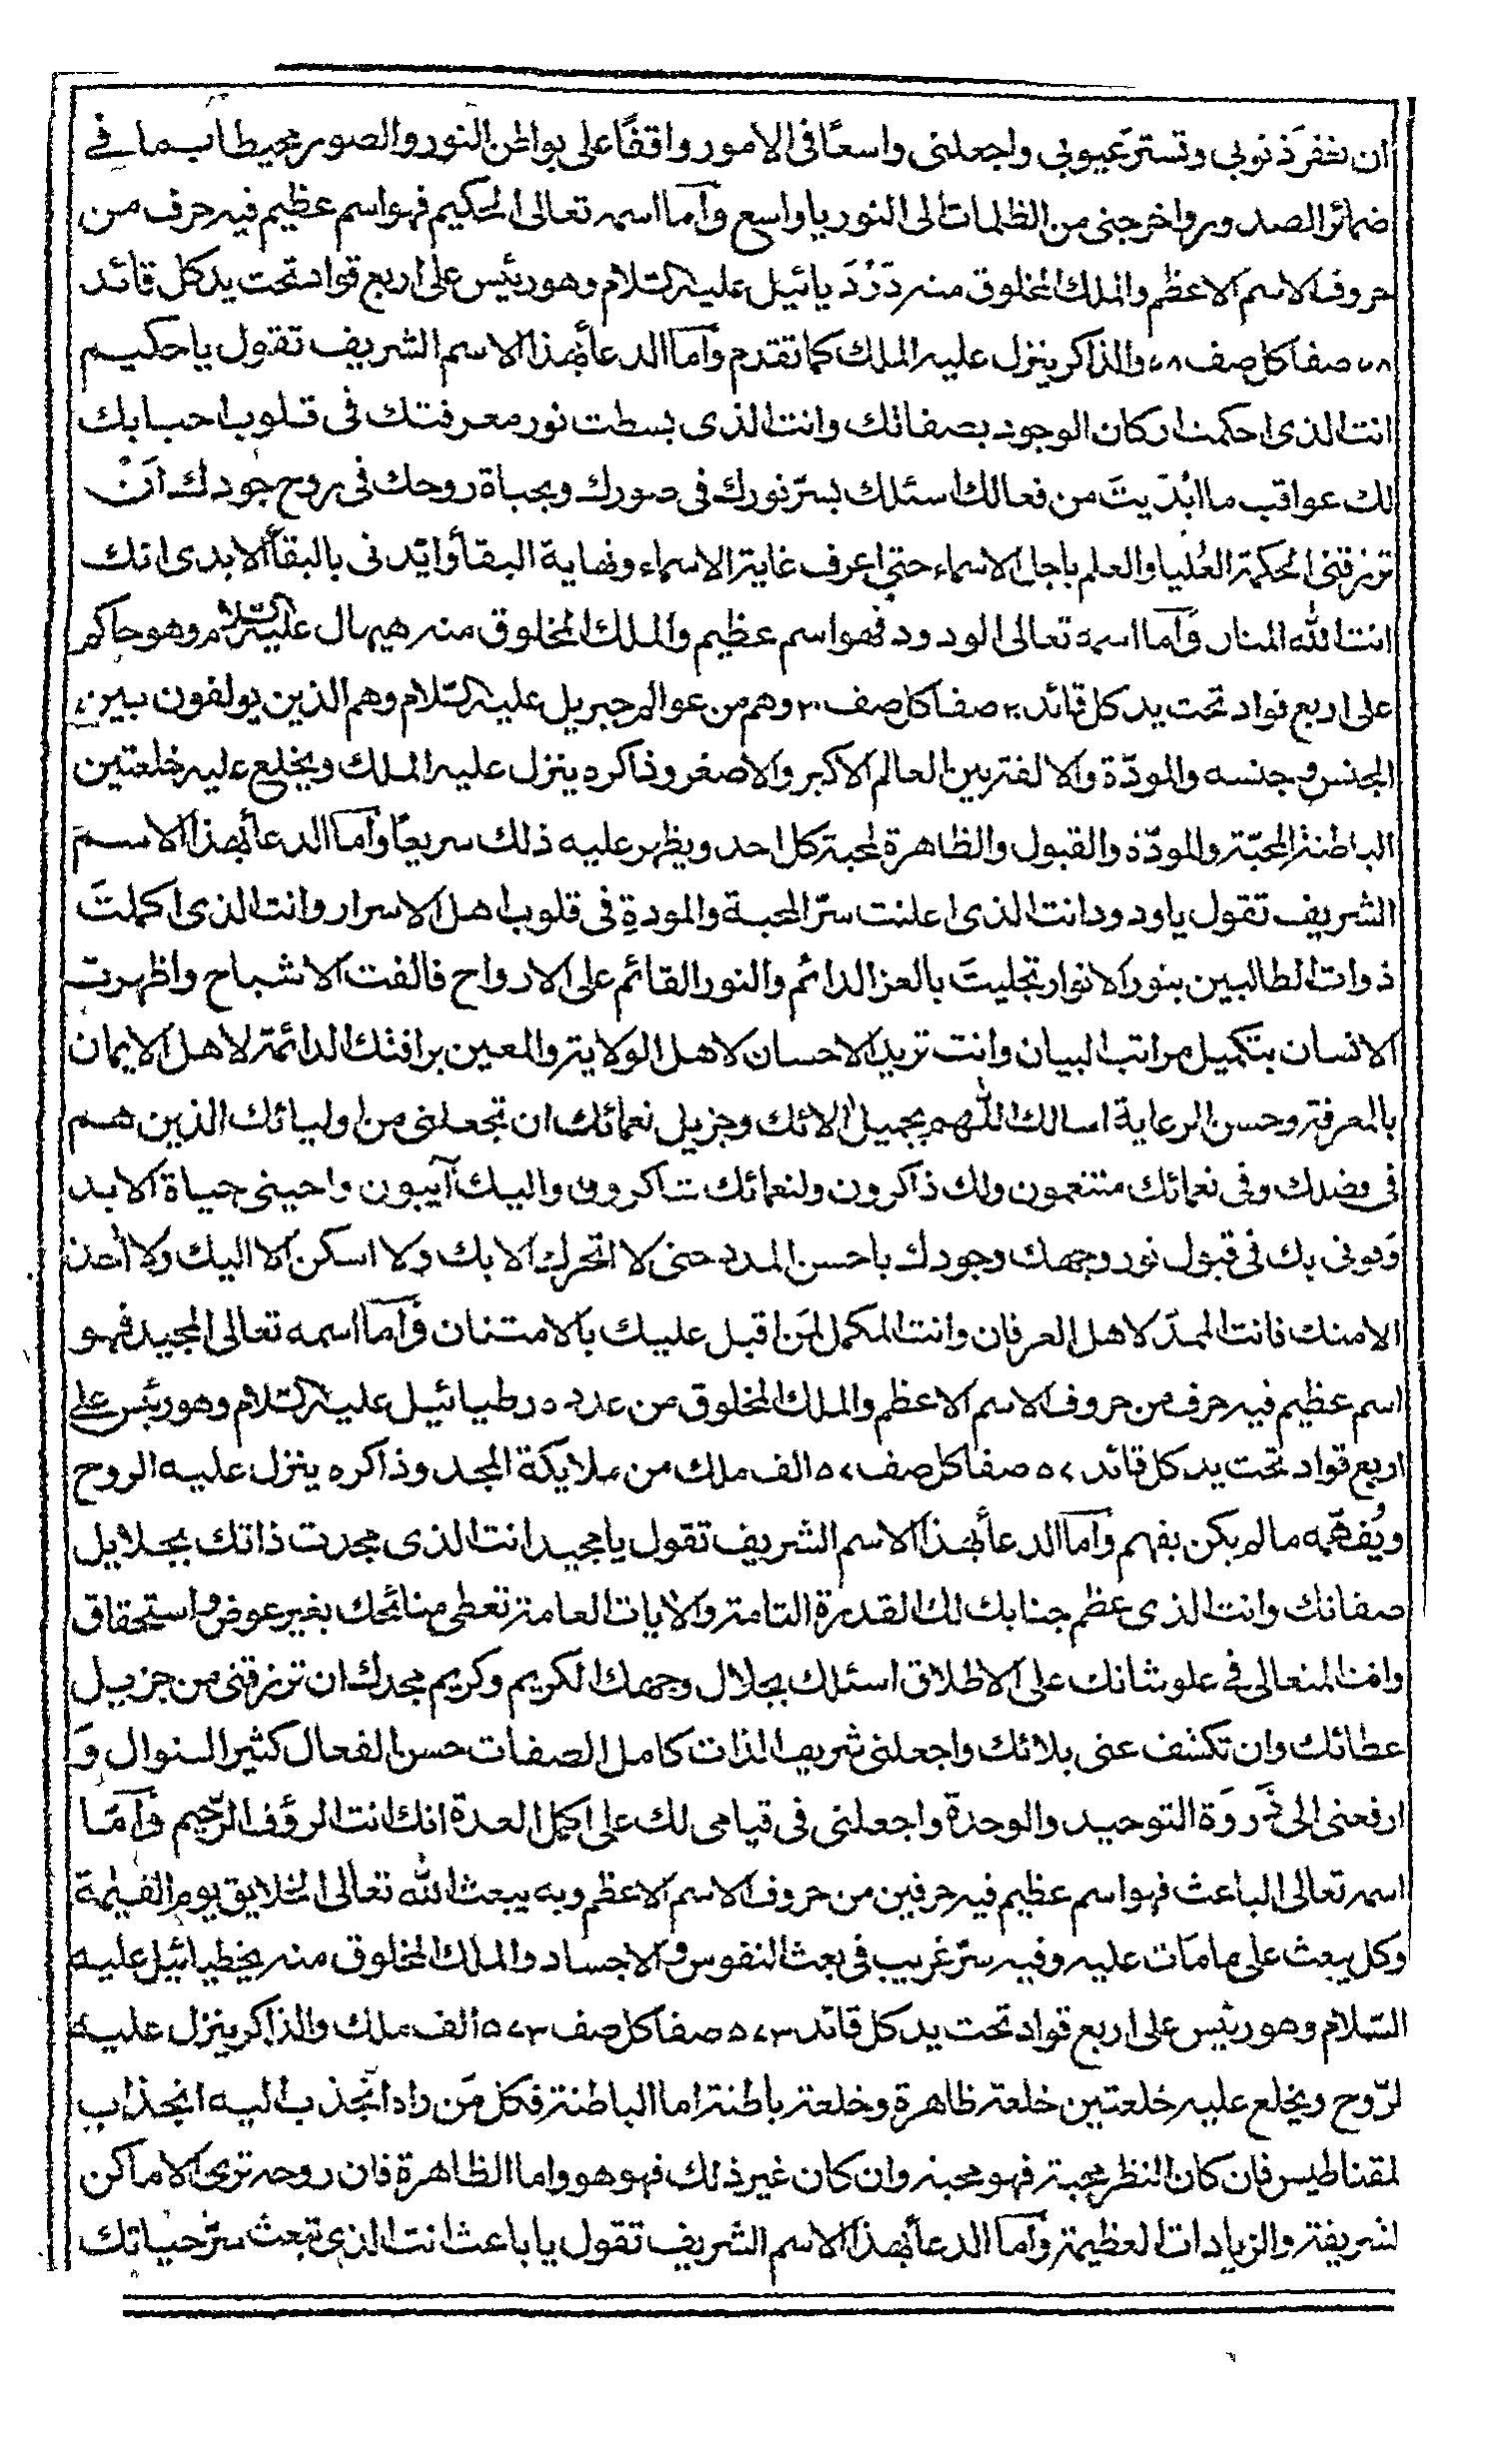 ان تغفرَ ذنوبي وتسترَ عيوبي واجعلنى واسعًا فى الامور واقفًا على بواطن النور والصور محيطا بما في
ضمائر الصدور واخرجنى من الظلمات الى النور يا واسع وآما اسمه تعالى الحكيم فهو اسم عظيم فيه حرف من
حروف الاسم الاعظم والملك المخلوق منه دَرْدَيائيل عليه السلام وهو رئيس على اربع قواد تحت يد كل قائد
٧٨ صفا كل صف ٧٨ والذاكر ينزل عليه الملك كما تقدم وآما الدعأ بهذا الاسم الشريف تقول يا حكيم
انت الذى احكمت اركان الوجود بصفاتك وانت الذى بسطت نور معرفتك فى قلوب احبابك
لك عواقب ما ابْدَيتَ من فعالك اسئلك بسرّ نورك فى صورك وبحياة روحك فى روح جودك اَنْ
ترزقنى الحكمة العُليا والعلم باجل الاسماء حتى اعرف غاية الاسماء ونهاية البقأ وايّدنى بالبقأ الابدى انك
انت الله المنان وَآما اسمه تعالى الودود فهو اسم عظيم والملك المخلوق منه هيهال عليه السلام وهو حاكم
على اربع قواد تحت يد كل قائد ٢٠ صفا كل صف ٢٠ وهم من عوالم جبريل عليه السلام وهم الذين يولفون بين
الجنس وجنسه والمودّة والالفة بين العالم الاكبر والاصغر وذاكره ينزل عليه الملك ويخلع عليه خلعتين
الباطنة المحبّة والمودّة والقبول والظاهرة لمحبة كل احد ويظهر عليه ذلك سريعًا وآما الدعأ بهذا الاسم
الشريف تقول يا ودود انت الذى اعلنت سرّ المحبة والمودةِ فى قلوب اهل الاسرار وانت الذى اكملتَ
ذوات الطالبين بنور الانوار تجليتَ بالعز الدائم والنور القائم على الارواح فالفت الاشباح واظهرت
الانسان بتكميل مراتب البيان وانت تريد الاحسان لاهل الولاية والمعين برافتك الدائمة لاهل الايمان
بالمعرفة وحسن الرعاية اسالك اللّهم بجميل الائك وجزيل نعمائك ان تجعلنى من اوليائك الذين هم
فى فضلك وفى نعمائك متنعمون ولك ذاكرون ولنعمائك شاكرون واليك آيبون واحينى حياة الابد
وَقونى بك فى قبول نور وجهك وجودك باحسن المدد حتى لا اتحرك الا بك ولا اسكن الا اليك ولا آخذ
الا منك فانت الممدّ لاهل العرفان وانت المكمل لمَن اقبل عليك بالامتنان وَآما اسمه تعالى المجيد فهو
اسم عظيم فيه حرف من حروف الاسم الاعظم والملك المخلوق من عدده رطيائيل عليه السلام وهو رئيس على
اربع قواد تحت يد كل قائد ٥٧ صفا كل صف ٥٧ الف ملك من ملايكة المجد وذاكره ينزل عليه الروح
ويُفهّمه ما لم يكن يفهم وآما الدعأ بهذا الاسم الشريف تقول يا مجيد انت الذى مجدت ذاتك بجلايل
صفاتك وانت الذى عظم جنابك لك القدرة التامة والايات العامة تعطى منائحك بغير عوض واستحقاق
وانت المتعالى في علو شانك على الاطلاق اسئلك بجلال وجهك الكريم وكريم مجدك ان ترزقنى من جزيل
عطائك وان تكشف عنى بلائك واجعلنى شريف الذات كامل الصفات حسن الفعال كثير النوال وَ
ارفعنى الى ذروَة التوحيد والوحدة واجعلنى فى قيامى لك على اكمل العدة انك انت الرؤف الرّحيم وآمّا
اسمه تعالى الباعث فهو اسم عظيم فيه حرفين من حروف الاسم الاعظم وبه يبعث الله تعالى الخلايق يوم القيٰمة
وكل يبعث على مامَات عليه وفيه سرّ غريب فى بعث النفوس والاجساد والملك المخلوق منه يخطيائيل عليه
السّلام وهو رئيس على اربع قواد تحت يد كل قائد ٥٧٣ صفا كل صف ٥٧٣ الف ملك والذاكر ينزل عليه
لرّوح ويخلع عليه خلعتين خلعة ظاهرة وخلعة باطنة اما الباطنة فكل مَن راه انجذب اليه انجذاب
لمقناطيس فان كان النظر محبة فهو محبة وان كان غير ذلك فهو هو واما الظاهرة فان روحه ترى الاماكن
لشريفة والزيادات العظيمة وآما الدعأ بهذا الاسم الشريف تقول يا باعث انت الذى تبعث سرّ حياتك